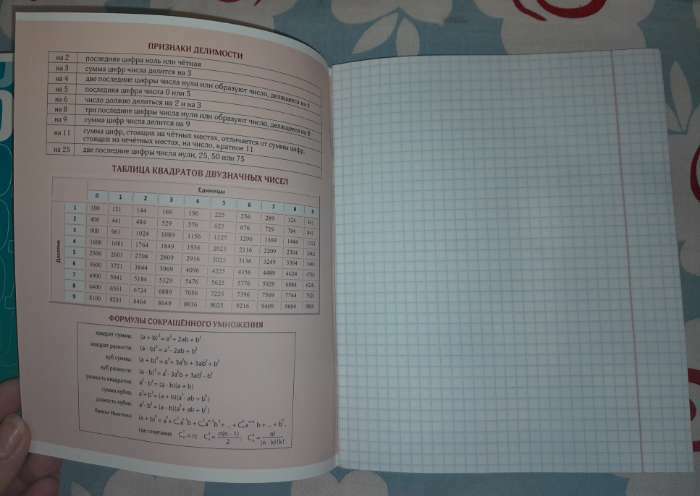 ПРИЗНАКИ ДЕЛИМОСТИ
на 2 последняя цифра ноль или чётная
на 3 сумма цифр числа делится на 3
на 4 две последние цифры числа нули или образуют число, делящееся на 4
на 5 последняя цифра 0 или 5
на 6 число должно делиться на 2 и на 3
на 8 три последние цифры числа нули или образуют число, делящееся на 8
на 9 сумма цифр числа делится на 9
на 11 сумма цифр, стоящих на чётных местах, отличается от суммы цифр,
стоящих на нечётных местах, на число, кратное 11
на 25 две последние цифры числа нули, 25, 50 или 75
ТАБЛИЦА КВАДРАТОВ ДВУЗНАЧНЫХ ЧИСЕЛ
Единицы
0 1 2 3 4 5 6 7 8 9
Десятки
1 100 121 144 169 196 225 256 289 324
2 400 441 484 529 576 625 676 729 784
3 900 961 1024 1089 1156 1225 1296 1369 1444
4 1600 1681 1764 1849 1936 2025 2116 2209 2304
5 2500 2601 2704 2809 2916 3025 3136 3249 3364
6 3600 3721 3844 3969 4096 4225 4356 4489 4624
7 4900 5041 5184 5329 5476 5625 5776 5929 6084
8 6400 6561 6724 6889 7056 7225 7396 7569 7744
9 8100 8281 8464 8649 8836 9025 9216 9409 9604
ФОРМУЛЫ СОКРАЩЁННОГО УМНОЖЕНИЯ
квадрат суммы (a + b)² = a² + 2ab + b²
квадрат разности (a - b)² = a² - 2ab + b²
куб суммы (a + b)³ = a³ + 3a²b + 3ab² + b³
куб разности (a - b)³ = a³ - 3a²b + 3ab² - b³
разность квадратов a² - b² = (a - b)(a + b)
сумма кубов a³ + b³ = (a + b)(a² - ab + b²)
разность кубов a³ - b³ = (a - b)(a² + ab + b²)
бином Ньютона